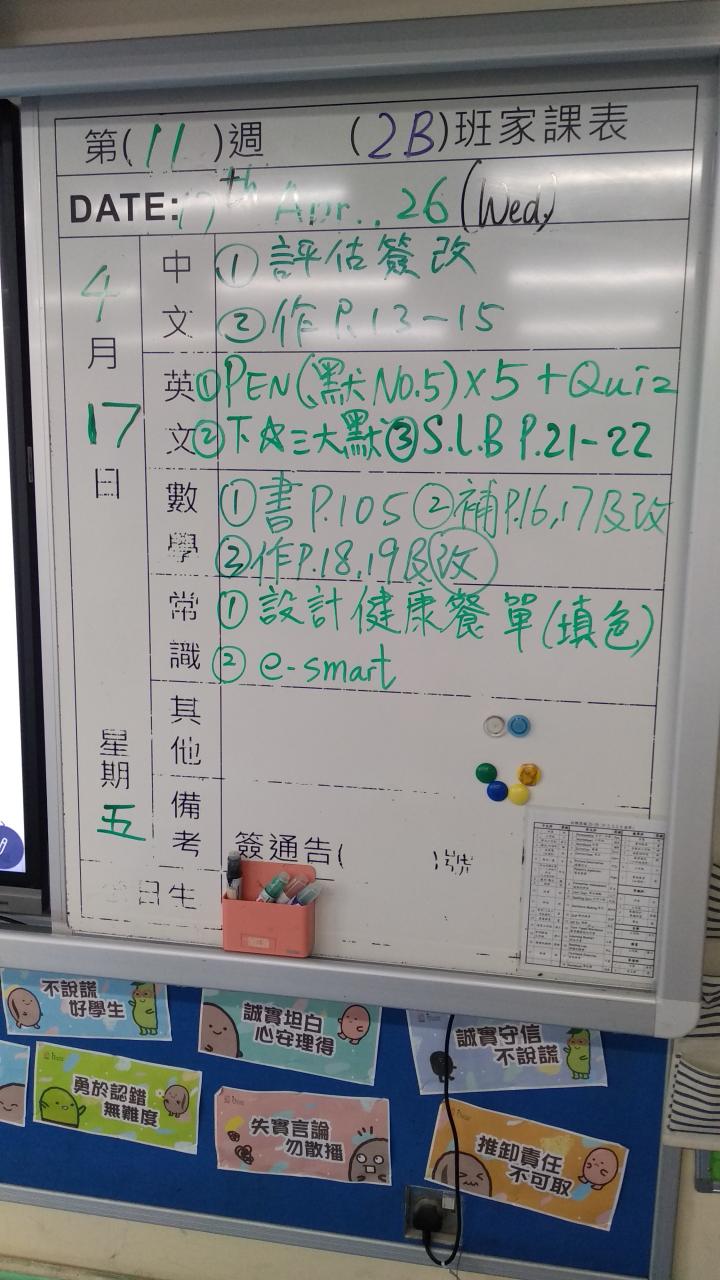 第(11)週 (2B)班家課表
DATE: 17th Apr.. 26 (Wed)
4月17日
星期五
中文
①評估簽改
②作P.13-15
英文
①PEN(默No.5)×5+Quiz
②下☆三大默③S.L.B P.21-22
數學
①書P.105②補P.16,17及改
③作P.18,19及改
常識
①設計健康餐單(填色)
②e-smart
其他
備考
簽通告( )號
日生
不說謊
好學生
誠實坦白
心安理得
誠實守信
不說謊
勇於認錯
無難度
失實言論
勿散播
推卸責任
不可取